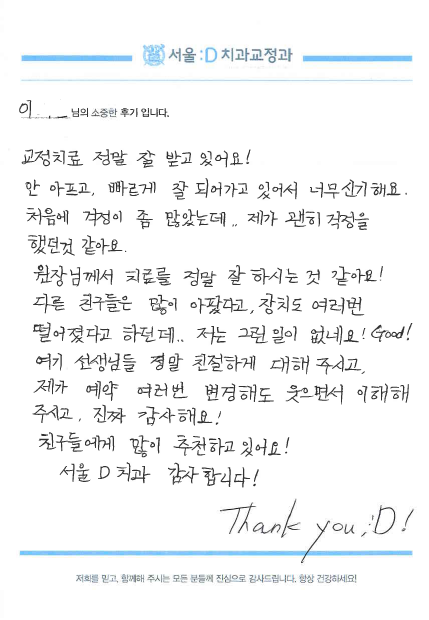 서울:D 치과교정과
이 님의 소중한 후기 입니다.
교정치료 정말 잘 받고 있어요!
안 아프고, 빠르게 잘 되어가고 있어서 너무신기해요.
처음에 걱정이 좀 많았는데.. 제가 괜히 걱정을
했던것 같아요.
원장님께서 치료를 정말 잘 하시는 것 같아요!
다른 친구들은 많이 아팠다고, 장치도 여러번
떨어졌다고 하던데.. 저는 그런일이 없네요! Good!
여기 선생님들 정말 친절하게 대해 주시고,
제가 예약 여러번 변경해도 웃으면서 이해해
주시고, 진짜 감사해요!
친구들에게 많이 추천하고 있어요!
서울 D 치과 감사 합니다!
Thank you, :D!
저희를 믿고, 함께해 주시는 모든 분들께 진심으로 감사드립니다. 항상 건강하세요!